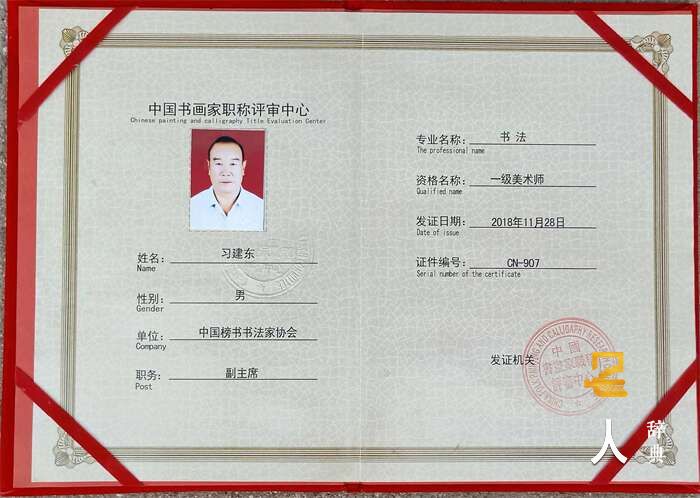 中国书画家职称评审中心
Chinese painting and calligraphy Title Evaluation Center
姓名：习建东
Name
性别：男
Gender
单位：中国榜书书法家协会
Company
职务：副主席
Post
专业名称：书法
The professional name
资格名称：一级美术师
Qualified name
发证日期：2018年11月28日
Date of issue
证件编号：CN-907
Serial number of the certificate
发证机关：
中国
人
辞典